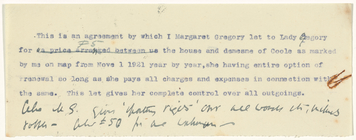 This is an agreement by which I Margaret Gregory let to Lady Gregory
for a price arranged between us the house and demesne of Coole as marked
by me on map from Nove 1 1921 year by year, she having entire option of
renewal so long as she pays all charges and expenses in connection with
the same. This let gives her complete control over all outgoings.
Also M.G. gives shooting rights over all woods
Also £50